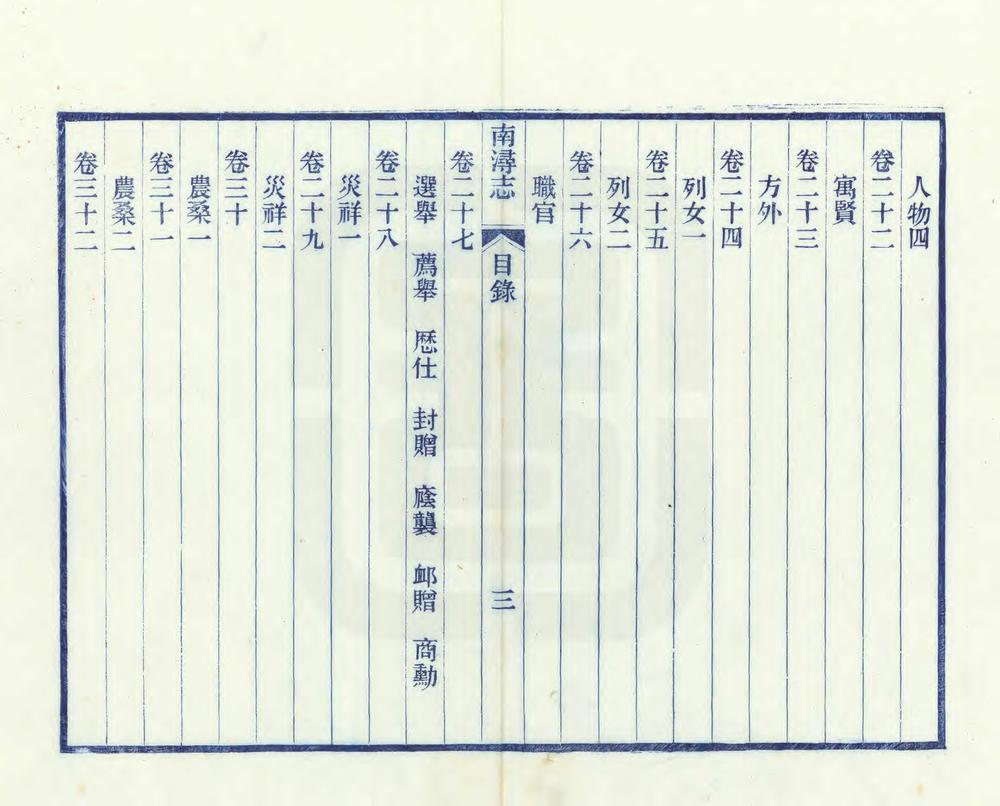 人物四
卷二十二
寓賢
卷二十三
方外
卷二十四
列女一
卷二十五
列女二
卷二十六
職官
南潯志 目錄 三
卷二十七
選舉 薦舉 歷仕 封贈 廕襲 卹贈 商勳
卷二十八
災祥一
卷二十九
災祥二
卷三十
農桑一
卷三十一
農桑二
卷三十二